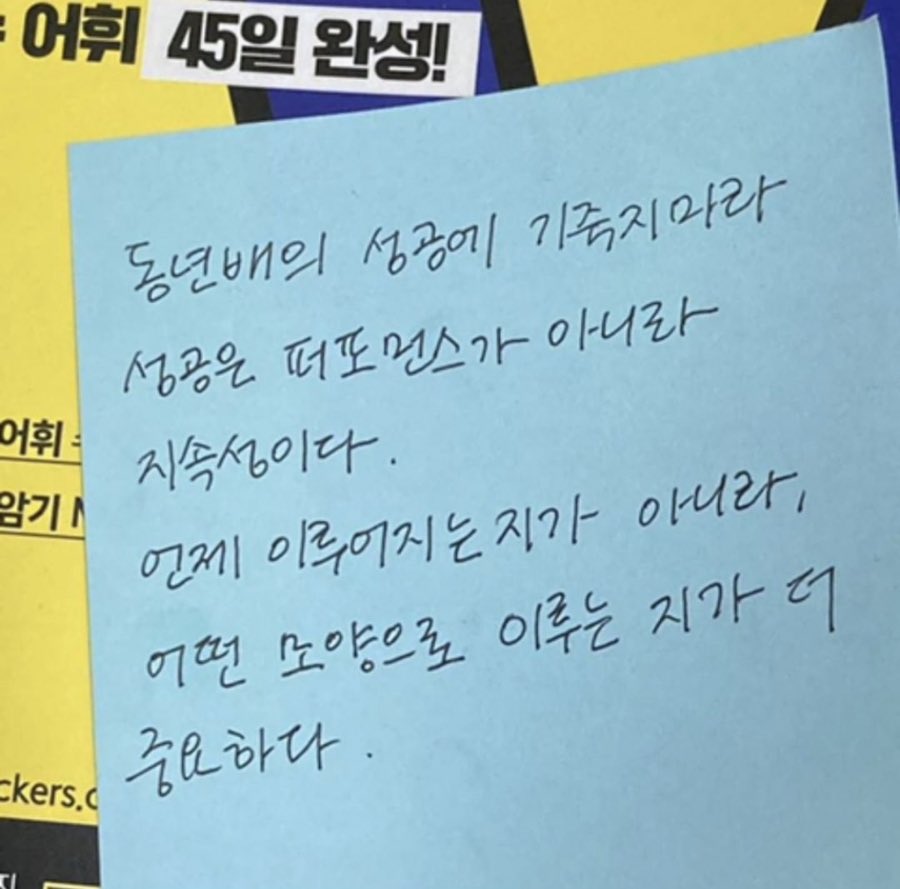 어휘 45일 완성!
동년배의 성공에 기죽지마라
성공은 퍼포먼스가 아니라
지속성이다.
언제 이루어지는지가 아니라,
어떤 모양으로 이루는 지가 더
중요하다.
어휘
암기
ckers.c